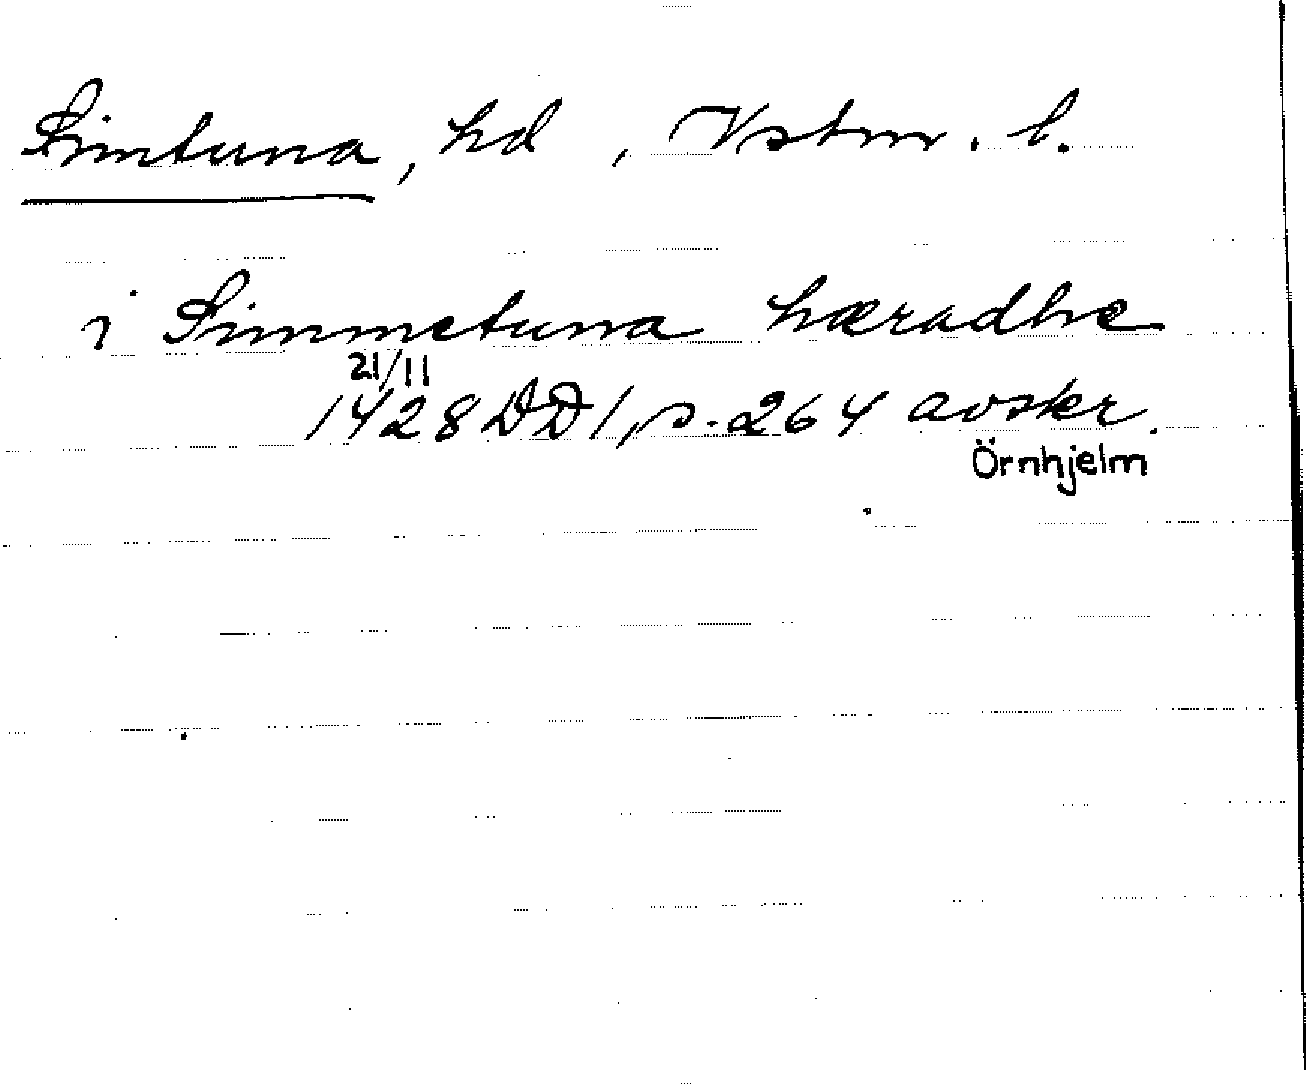 Simtuna, hd, Vstm. l.
i Simmetuna hæradhe
21/11
1428 DD 1, s. 264 avskr.
Örnhjelm